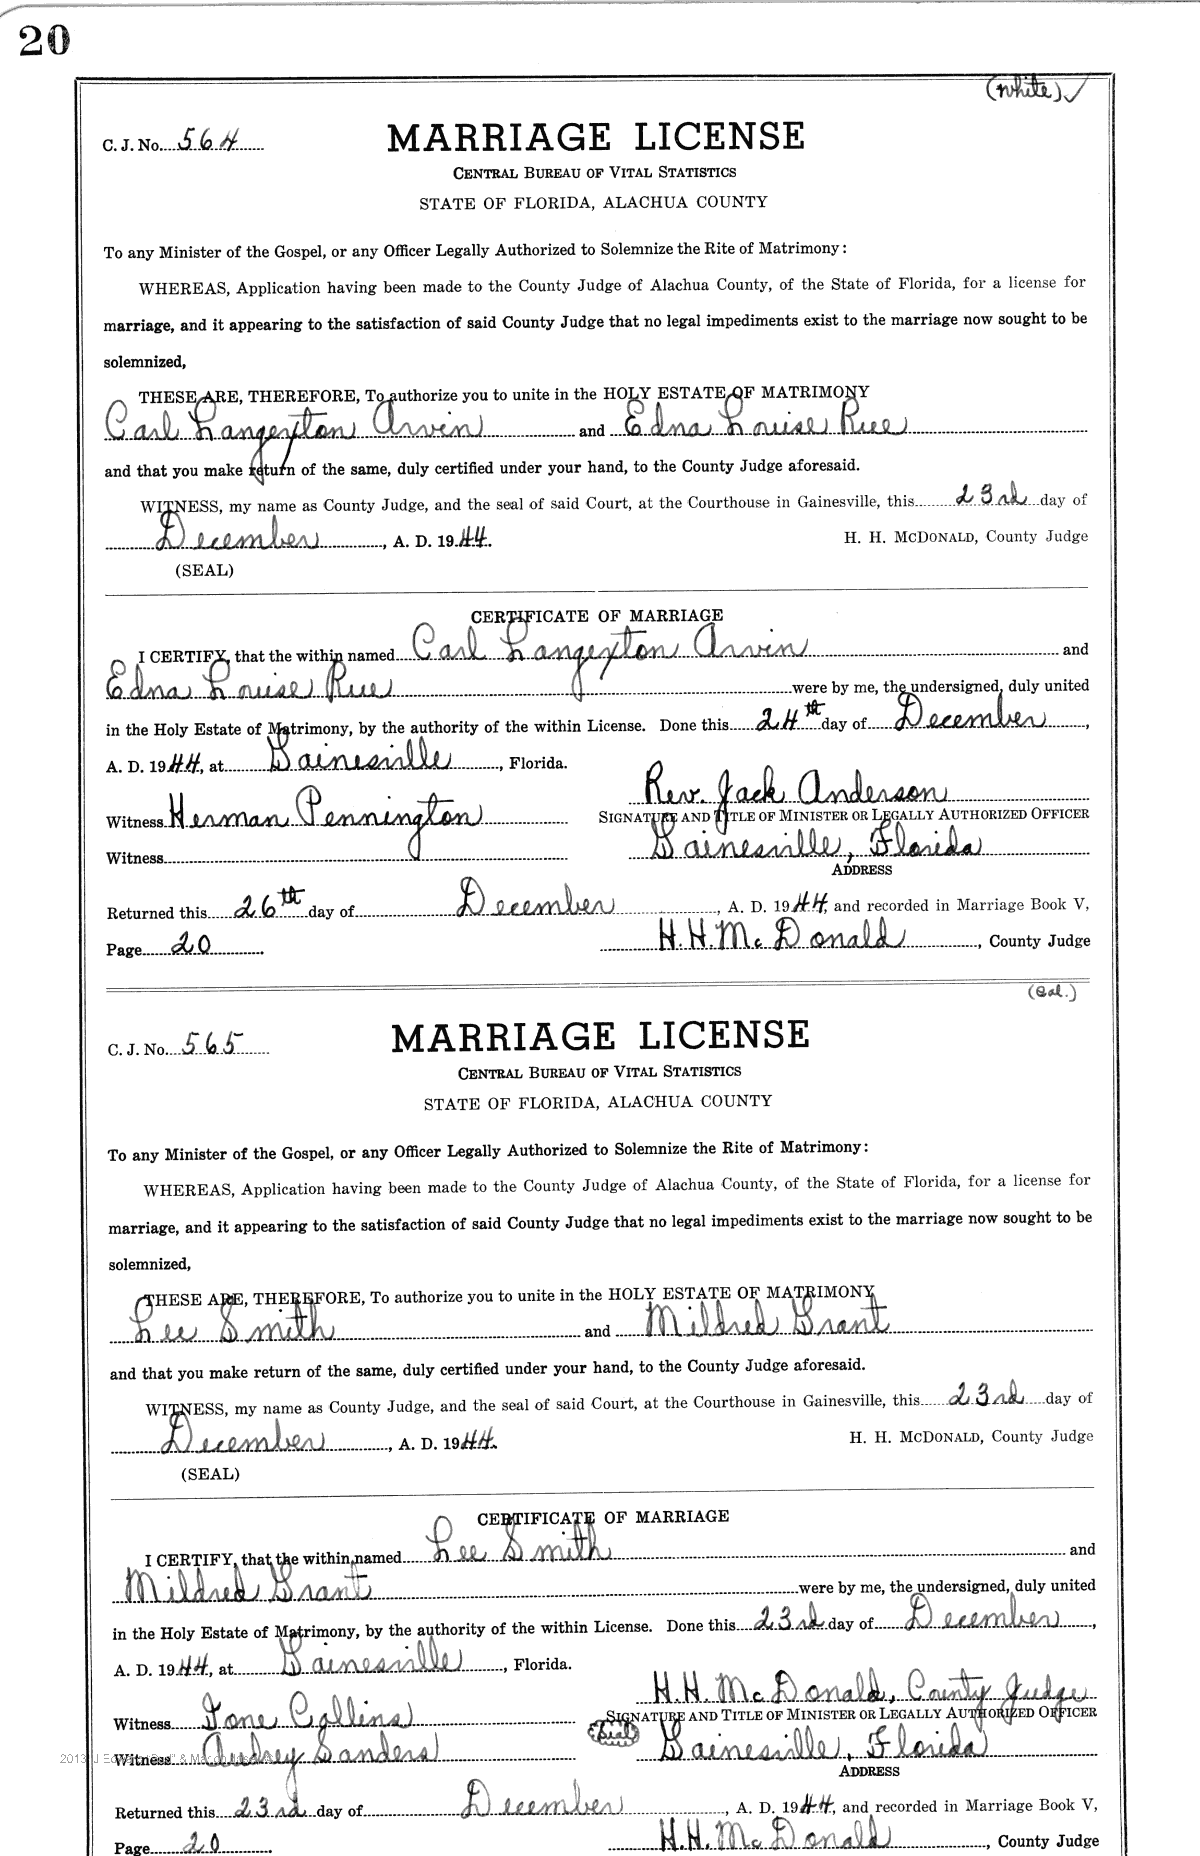 20
(White) ✓
C. J. No. 564
MARRIAGE LICENSE
CENTRAL BUREAU OF VITAL STATISTICS
STATE OF FLORIDA, ALACHUA COUNTY
To any Minister of the Gospel, or any Officer Legally Authorized to Solemnize the Rite of Matrimony:
WHEREAS, Application having been made to the County Judge of Alachua County, of the State of Florida, for a license for
marriage, and it appearing to the satisfaction of said County Judge that no legal impediments exist to the marriage now sought to be
solemnized,
THESE ARE, THEREFORE, To authorize you to unite in the HOLY ESTATE OF MATRIMONY
Carl Arvin and Edna Louise Rue
and that you make return of the same, duly certified under your hand, to the County Judge aforesaid.
WITNESS, my name as County Judge, and the seal of said Court, at the Courthouse in Gainesville, this 23rd day of
December, A. D. 1944. H. H. MCDONALD, County Judge
(SEAL)
CERTIFICATE OF MARRIAGE
I CERTIFY, that the within named Carl Arvin and
Edna Louise Rue were by me, the undersigned, duly united
in the Holy Estate of Matrimony, by the authority of the within License. Done this 24th day of December,
A. D. 1944, at Gainesville, Florida.
Rev. Jack Anderson
Witness Herman Pennington SIGNATURE AND TITLE OF MINISTER OR LEGALLY AUTHORIZED OFFICER
Witness Gainesville, Florida
ADDRESS
Returned this 26th day of December, A. D. 1944, and recorded in Marriage Book V,
Page 20 H. H. McDonald, County Judge
(Col.)
C. J. No. 565
MARRIAGE LICENSE
CENTRAL BUREAU OF VITAL STATISTICS
STATE OF FLORIDA, ALACHUA COUNTY
To any Minister of the Gospel, or any Officer Legally Authorized to Solemnize the Rite of Matrimony:
WHEREAS, Application having been made to the County Judge of Alachua County, of the State of Florida, for a license for
marriage, and it appearing to the satisfaction of said County Judge that no legal impediments exist to the marriage now sought to be
solemnized,
THESE ARE, THEREFORE, To authorize you to unite in the HOLY ESTATE OF MATRIMONY
Lee Smith and Mildred Grant
and that you make return of the same, duly certified under your hand, to the County Judge aforesaid.
WITNESS, my name as County Judge, and the seal of said Court, at the Courthouse in Gainesville, this 23rd day of
December, A. D. 1944. H. H. MCDONALD, County Judge
(SEAL)
CERTIFICATE OF MARRIAGE
I CERTIFY, that the within named Lee Smith and
Mildred Grant were by me, the undersigned, duly united
in the Holy Estate of Matrimony, by the authority of the within License. Done this 23rd day of December,
A. D. 1944, at Gainesville, Florida.
H. H. McDonald, County Judge
Witness Collins (Seal) SIGNATURE AND TITLE OF MINISTER OR LEGALLY AUTHORIZED OFFICER
Witness Audrey Sanders Gainesville, Florida
ADDRESS
Returned this 23rd day of December, A. D. 1944, and recorded in Marriage Book V,
Page 20 H. H. McDonald, County Judge